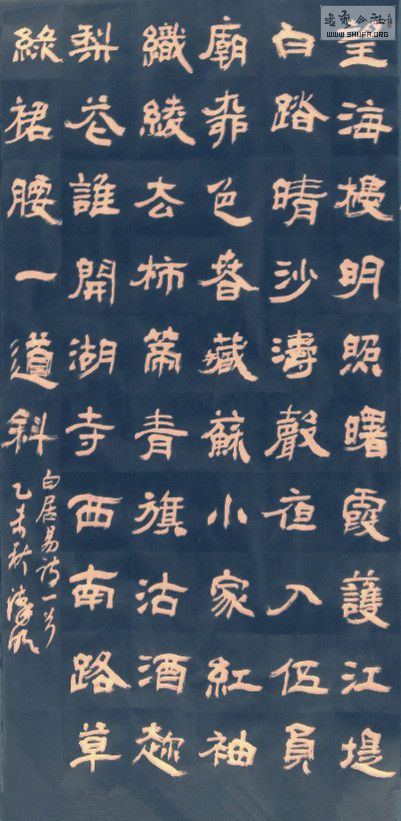 書藝公社
WWW.SHUFA.ORG
望海樓明照曙霞護江堤
白踏晴沙濤聲夜入伍員
廟柳色春藏蘇小家紅袖
織綾夸柿蒂青旗沽酒趂
梨花誰開湖寺西南路草
綠裙腰一道斜
白居易詩一首
乙未秋